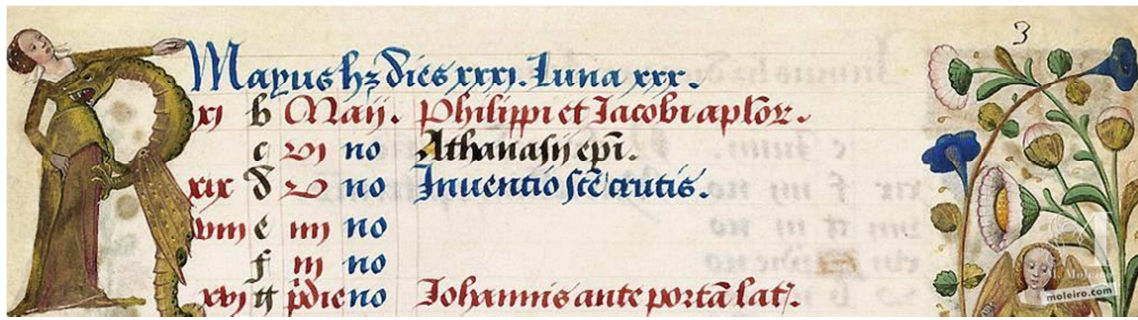 3
KL Mayus hz dies xxxi. Luna xxx.
xi b Maii. Philippi et Jacobi aplor.
c vi no Athanasii epi.
xix d v no Inuentio sce crucis.
viii e iiii no
f iii no
xvi g pdie no Johannis ante porta lat.
M. Moleiro
moleiro.com